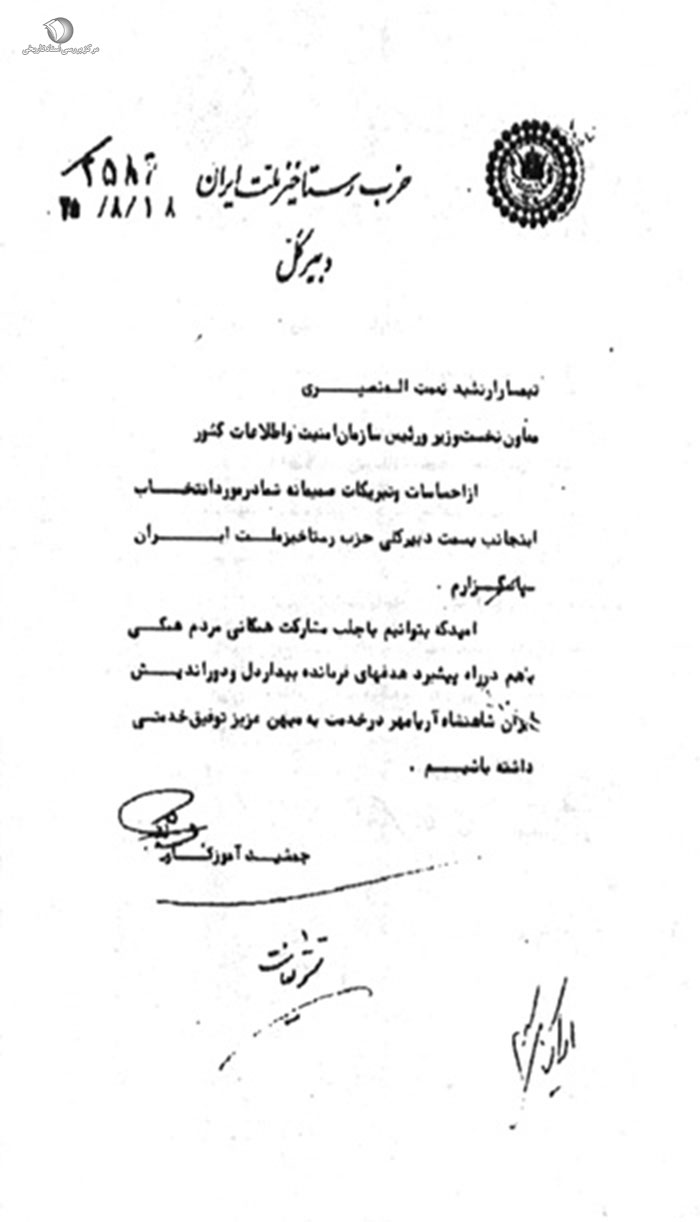 مرکز بررسی اسناد تاریخی
حزب رستاخیز ملت ایران
۲۵۸۶
۲۵ /۸/۱۸
دبیر کل
تیمسار ارتشبد نعمت اله نصیـــــــری
معاون نخست وزیر ورئیس سازمان امنیت واطلاعات کشور
از احساسات وتبریکات صمیمانه شما در مورد انتخـــــاب
اینجانب بسمت دبیرکلی حزب رستاخیز ملـت ایـــــــران
سپاسگـــزارم .
امید که بتوانیم با جلب مشارکت همگانی مردم همگـــی
با هم در راه پیشبرد هدفهای فرمانده بیدار دل و دوراندیـــش
ایران شاهنشاه آریامهر در خدمت به میهن عزیز توفیق خدمتـی
داشته باشیـــم .
جمشیـــد آموزگـــار
تشریفات